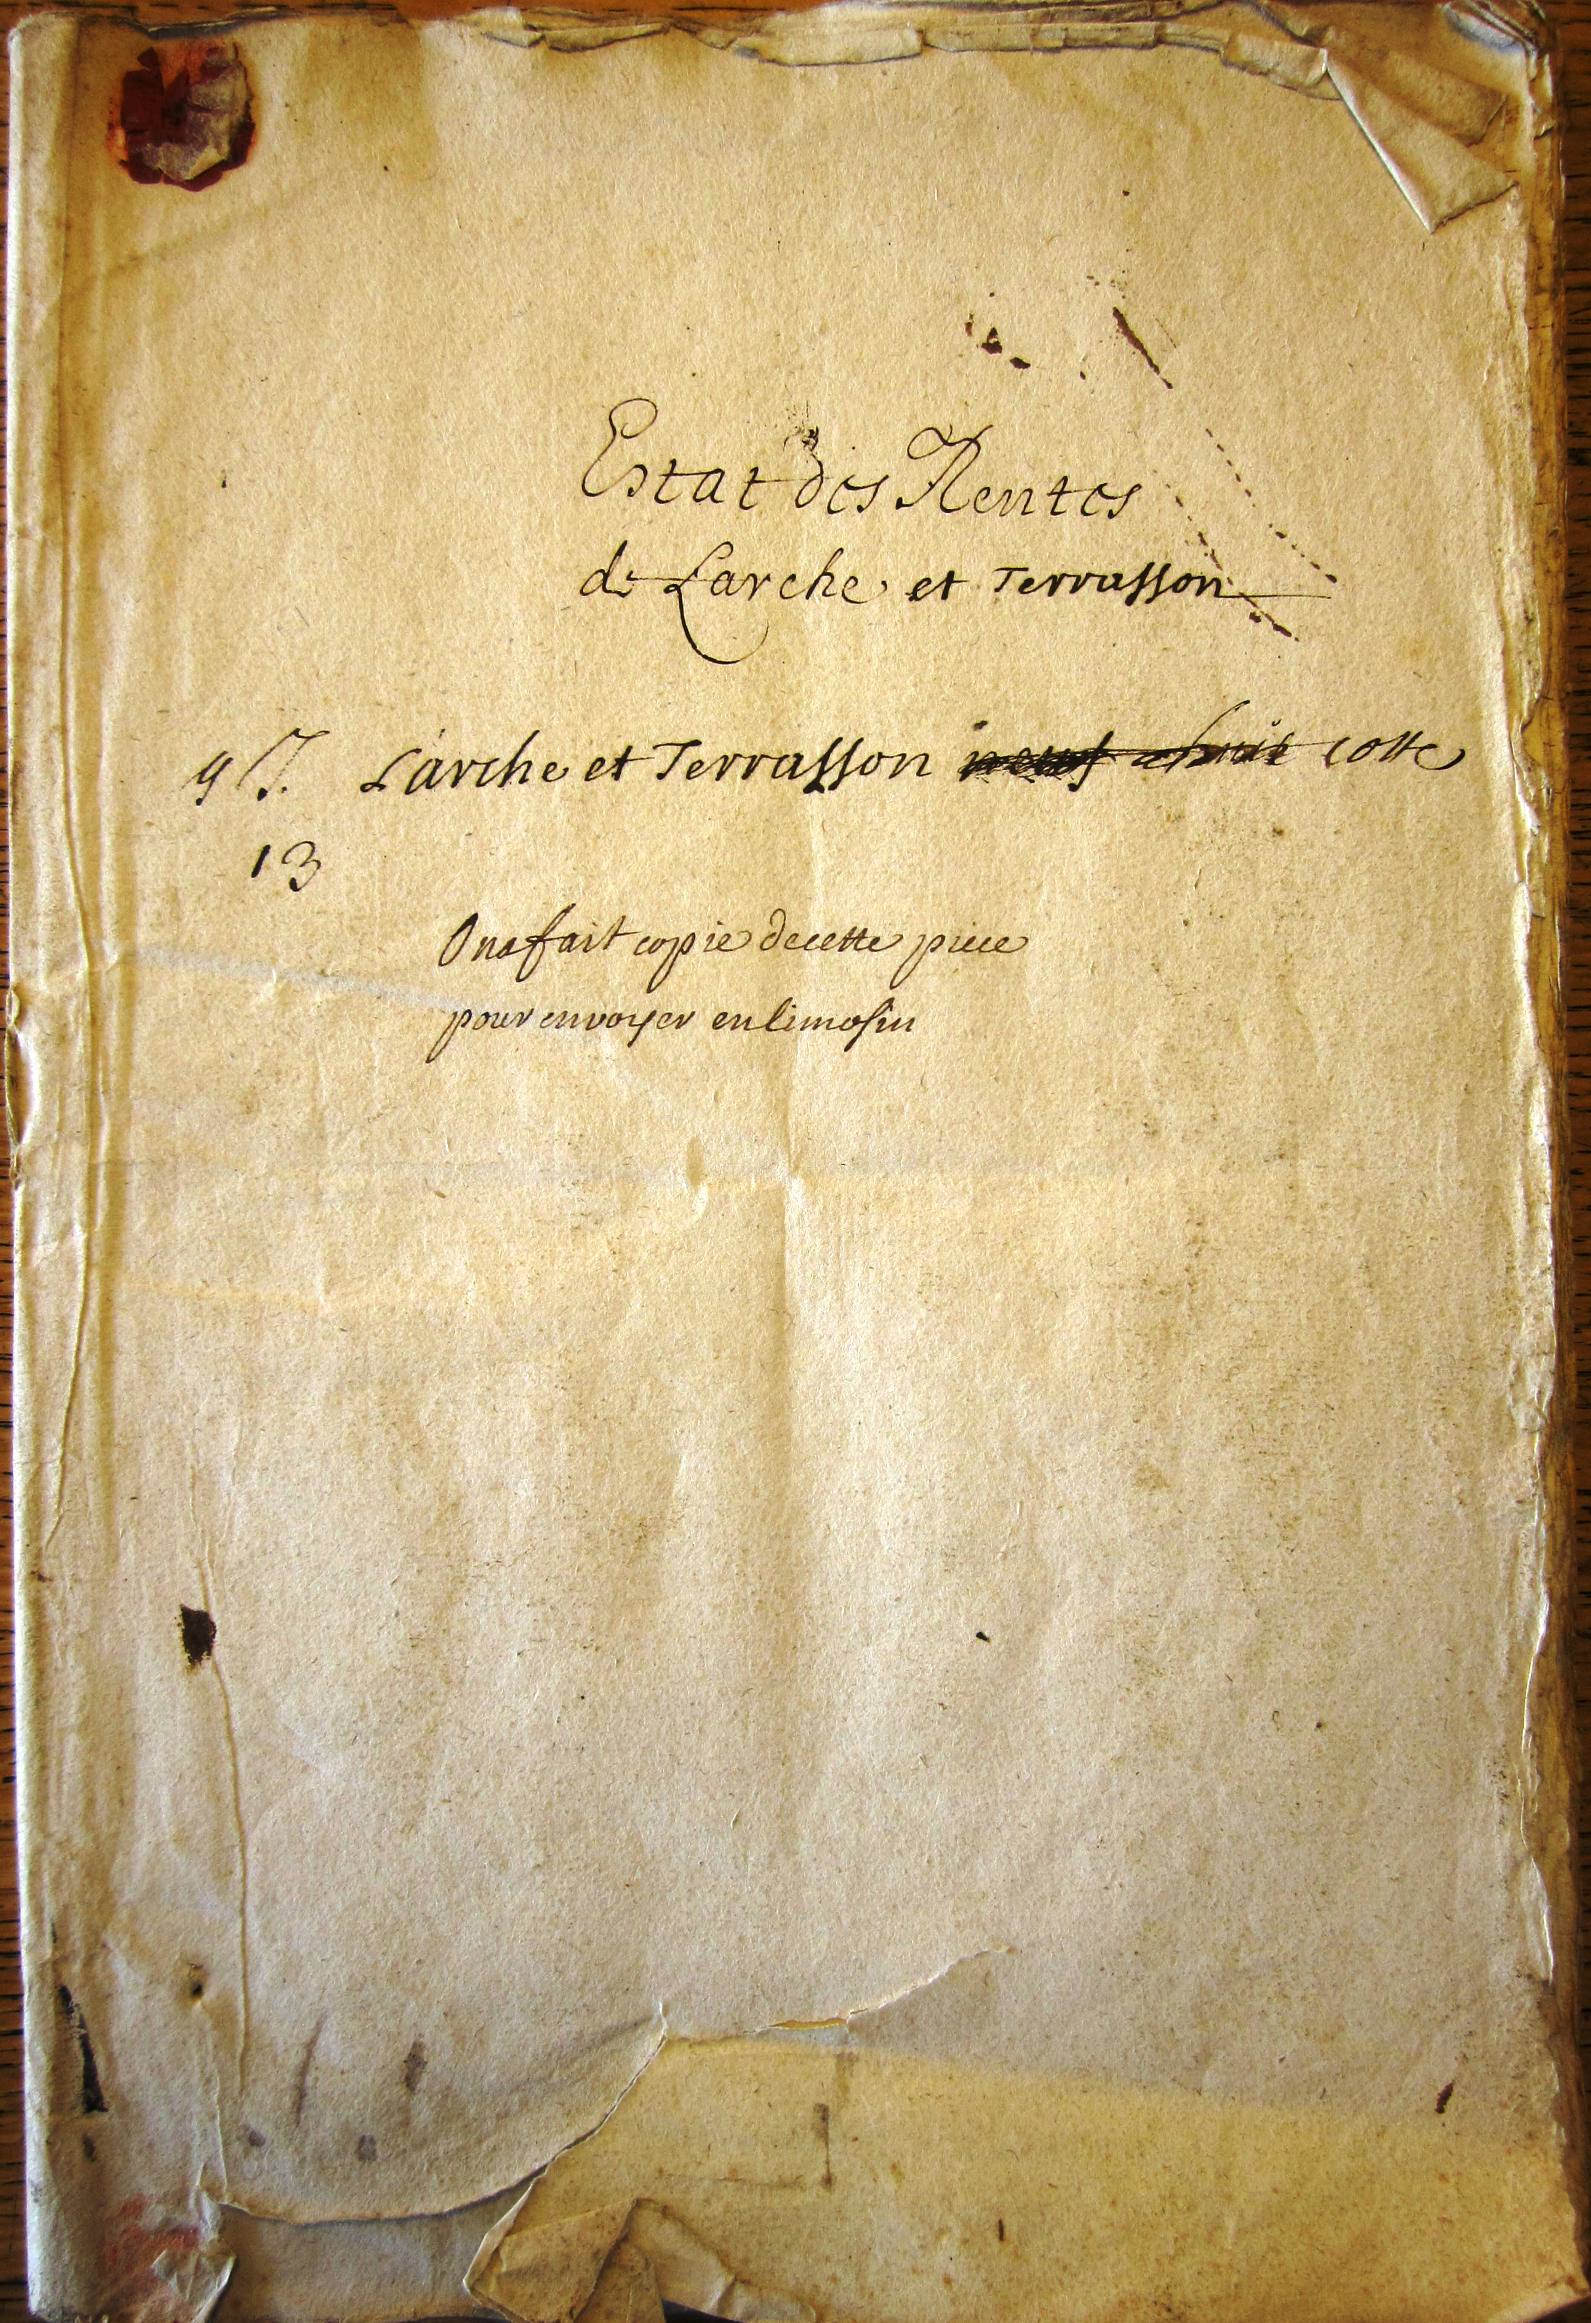 Estat des Rentes
de Larche et Terrasson
9 J. Larche et Terrasson cotte
13
On a fait copie de cette piece
pour envoyer en limosin